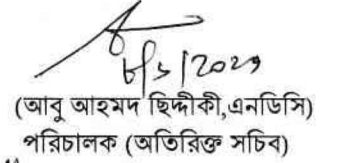 (আবু আহমদ ছিদ্দীকী,এনডিসি)
পরিচালক (অতিরিক্ত সচিব)